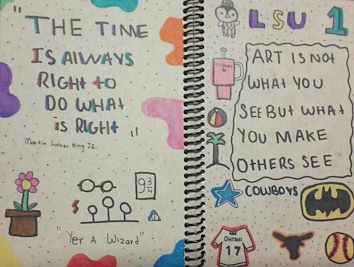 "THE TIME
IS AlWAYS
RIGHT to
DO WHAt
is RIGHT"
Martin Luther King JR.
9 3/4
"Yer A Wizard"
LSU 1
ART IS NOt
WHAt YOU
SEE But WHAt
YOU MAKE
OTHERS SEE"
COWBOYS
17